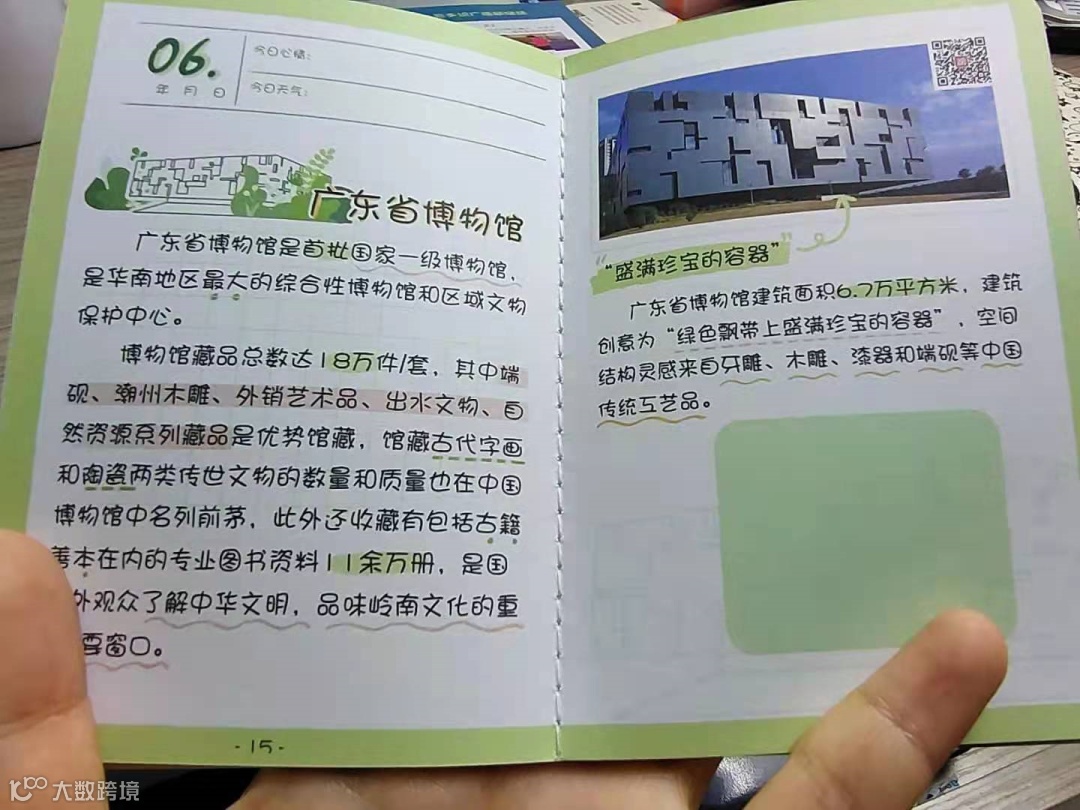 06.
年 月 日
今日心情:
今日天气:
广东省博物馆
广东省博物馆是首批国家一级博物馆,
是华南地区最大的综合性博物馆和区域文物
保护中心。
博物馆藏品总数达18万件/套,其中端
砚、潮州木雕、外销艺术品、出水文物、自
然资源系列藏品是优势馆藏,馆藏古代字画
和陶瓷两类传世文物的数量和质量也在中国
博物馆中名列前茅,此外还收藏有包括古籍
善本在内的专业图书资料11余万册,是国
外观众了解中华文明,品味岭南文化的重
要窗口。
-15-
“盛满珍宝的容器”
广东省博物馆建筑面积6.7万平方米,建筑
创意为“绿色飘带上盛满珍宝的容器”,空间
结构灵感来自牙雕、木雕、漆器和端砚等中国
传统工艺品。
大数跨境